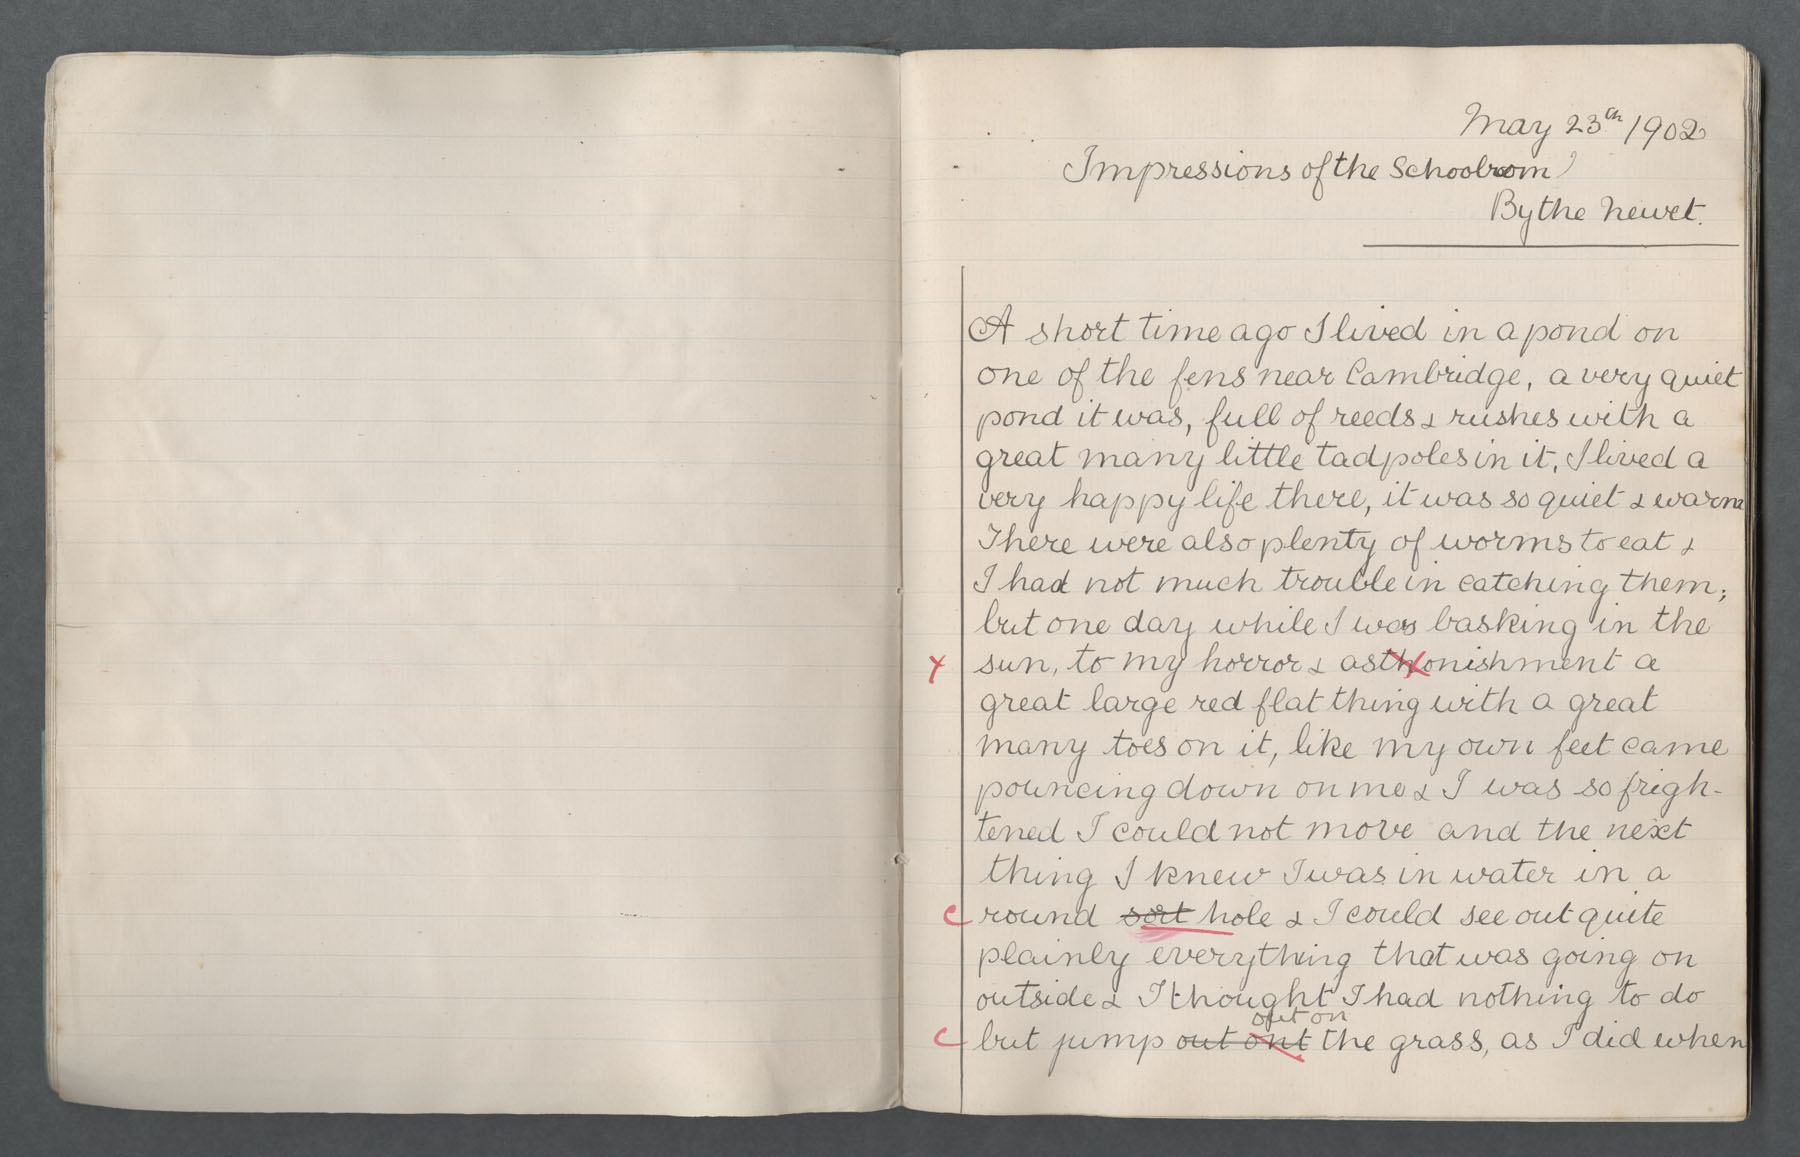 May 23rd 1902
Impressions of the Schoolroom
By the Newet.
A short time ago I lived in a pond on
one of the fens near Cambridge, a very quiet
pond it was, full of reeds & rushes with a
great many little tadpoles in it. I lived a
very happy life there, it was so quiet & warm
There were also plenty of worms to eat &
I had not much trouble in catching them;
but one day while I was basking in the
x sun, to my horror & asthonishment a
great large red flat thing with a great
many toes on it, like my own feet came
pouncing down on me & I was so frigh-
tened I could not move and the next
thing I knew I was in water in a
c round sort hole & I could see out quite
plainly everything that was going on
outside & I thought I had nothing to do
out on
c but jump out ont the grass, as I did when